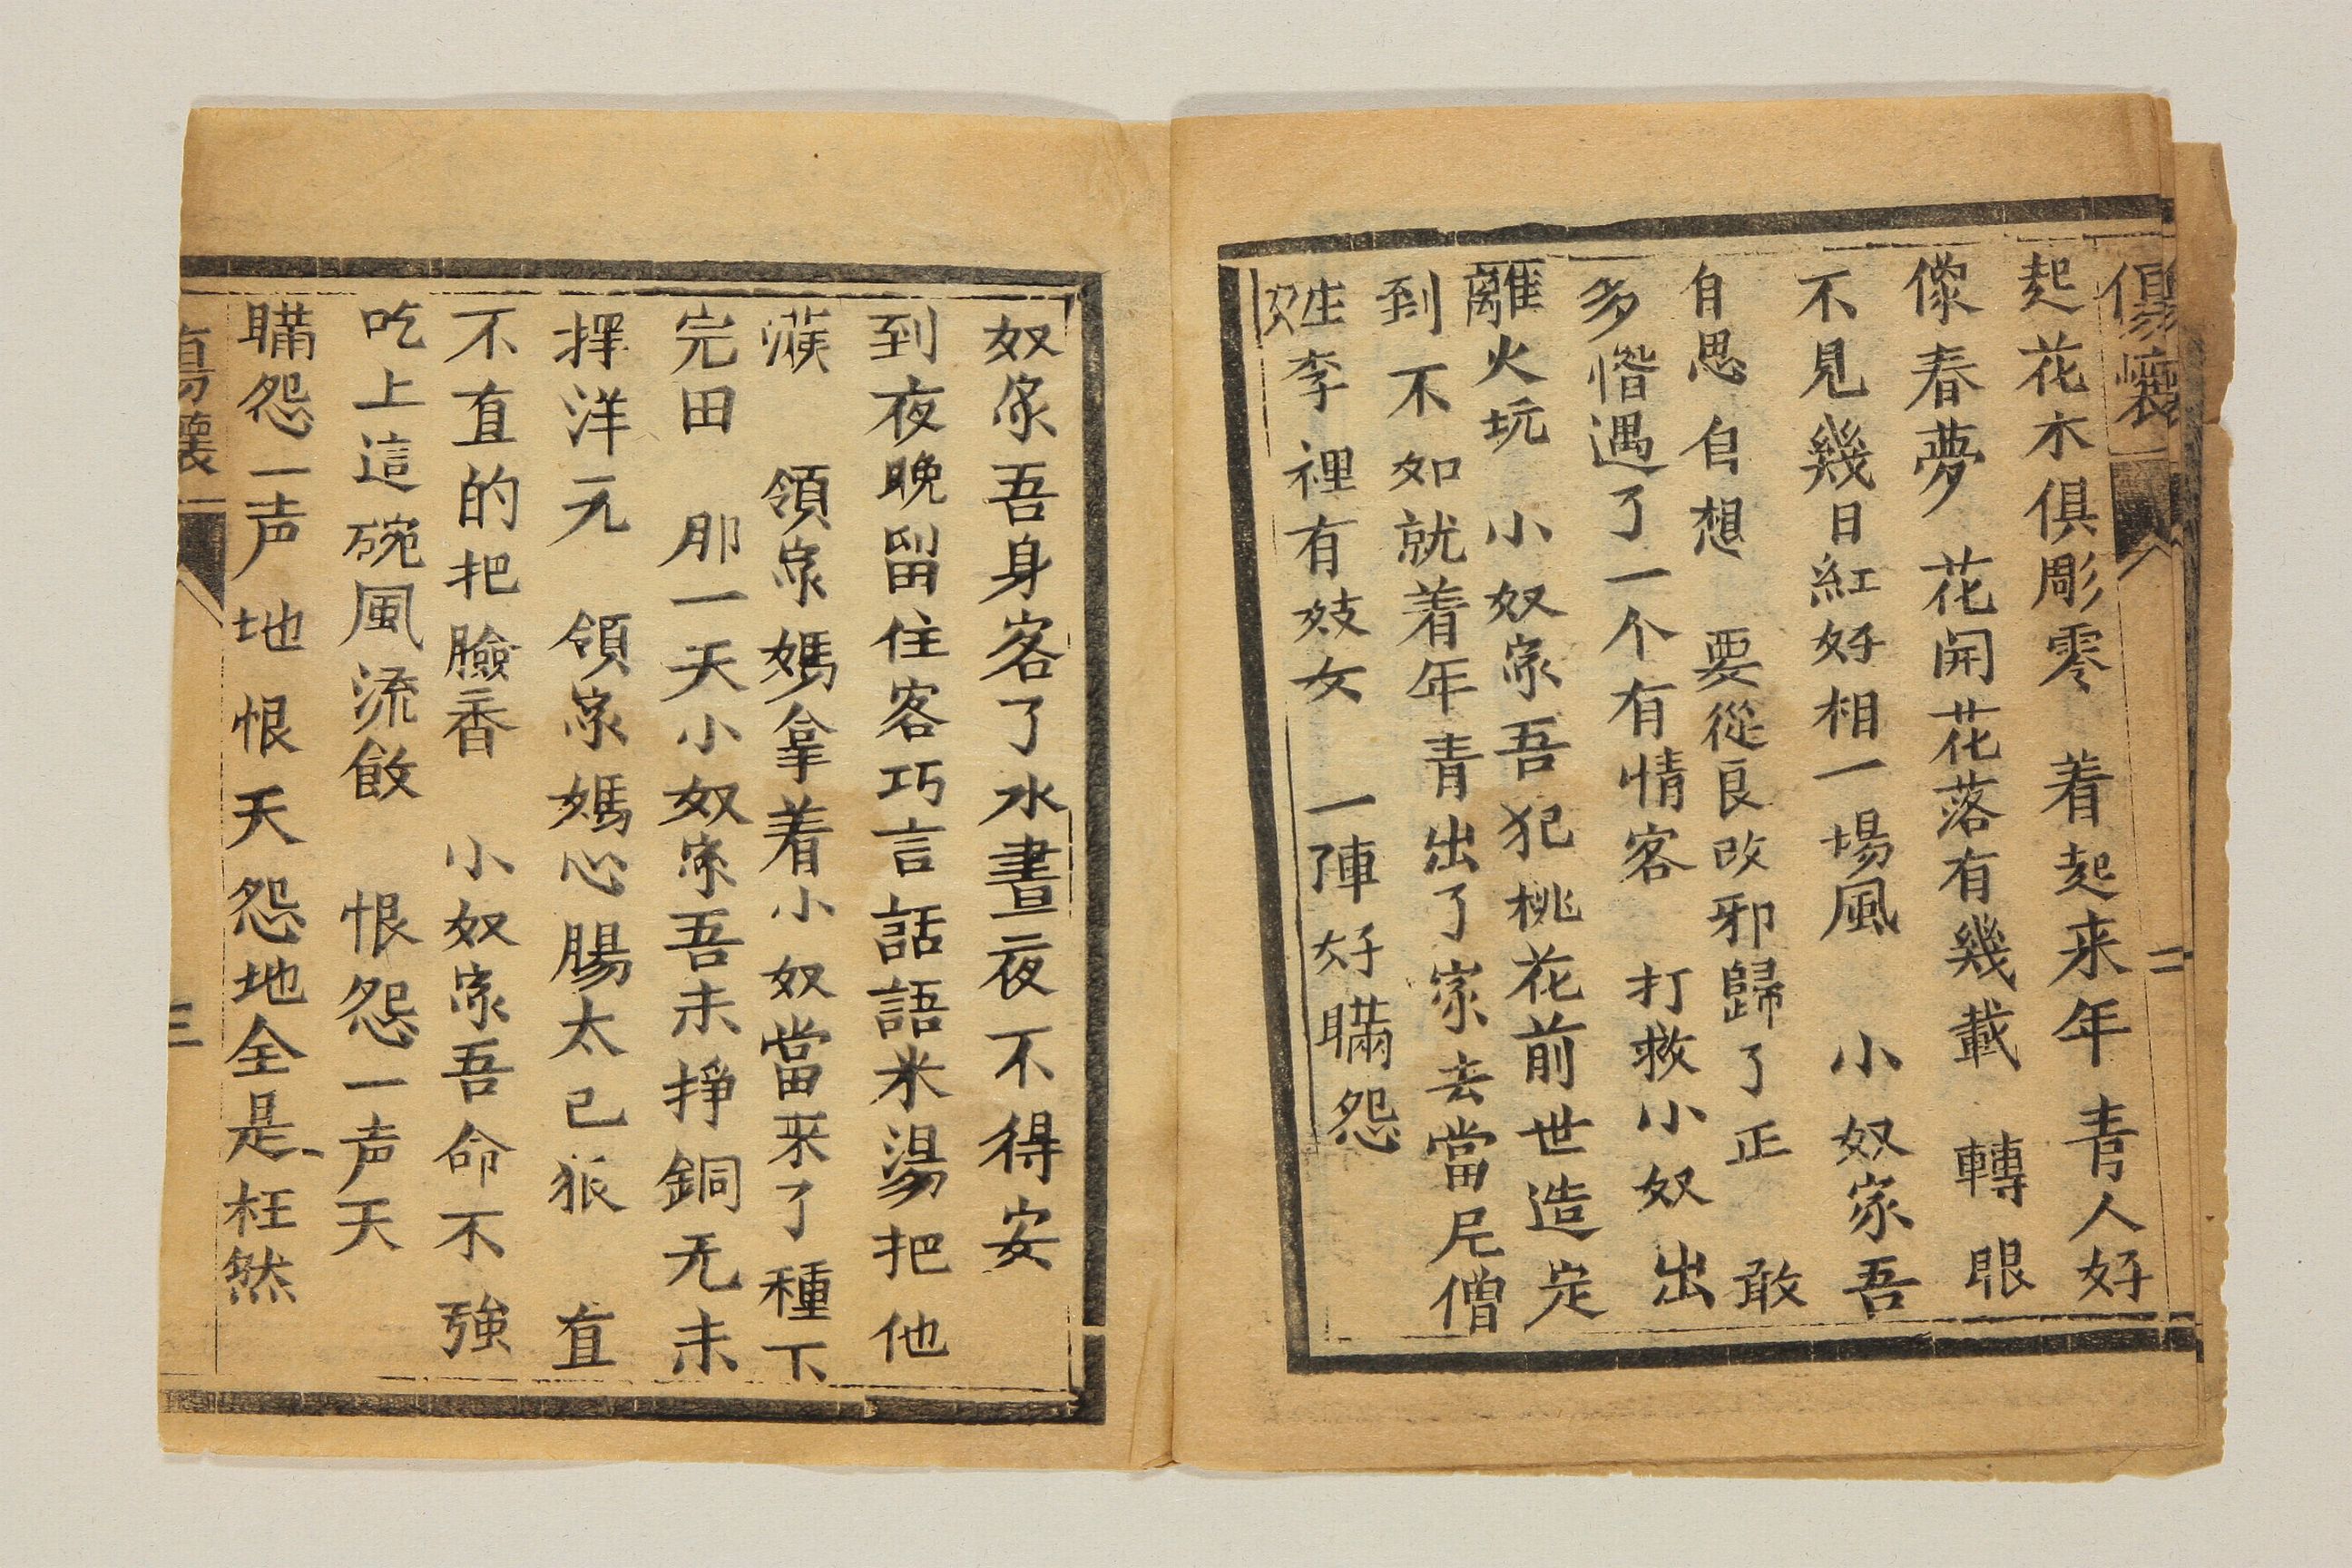 傷懷 二
起花木俱彫零 着起来年青人好
像春夢 花開花落有幾載 轉眼
不見幾日紅好相一場風 小奴家吾
自思自想 要從良改邪歸了正 敢
多偺遇了一个有情客 打救小奴出
離火坑 小奴家吾犯桃花前世造定
到不如就着年青出了家去當尼僧
姓李裡有妓女 一陣好瞞怨
奴家吾身客了水晝夜不得安
到夜晚留住客巧言話語米湯把他
領家媽拿着小奴當来了種下
完田 那一天小奴家吾未掙銅无未
擇洋元 領家媽心腸太已狠 直
不直的把臉香 小奴家吾命不強
吃上這碗風流飲 恨怨一声天
瞞怨一声地 恨天怨地全是枉然
傷懷 三